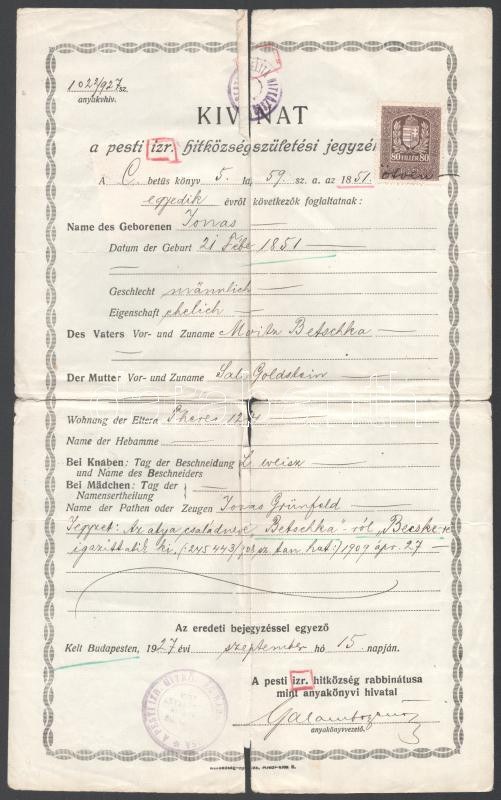 1022/927 sz.
anyakvhiv.
KIVONAT
80 FILLÉR 80
a pesti izr. hitközség születési jegyzék
A C. betüs könyv 5. la, 59. sz. a. az 1851.
egyedik évről következők foglaltatnak:
Name des Geborenen Jonas
Datum der Geburt 21 Febr 1851
Geschlecht männlich
Eigenschaft ehelich
Des Vaters Vor- und Zuname Moritz Betschka
Der Mutter Vor- und Zuname Sal. Goldstein
Wohnung der Eltern
Name der Hebamme
Bei Knaben: Tag der Beschneidung L. Weisz
und Name des Beschneiders
Bei Mädchen: Tag der
Namensertheilung
Name der Pathen oder Zeugen Jonas Grünfeld
Jegyzet: Az atya családneve „Betschka"-ról „Becske"-re
igazittatik ki. (245443/908 sz. tan. hat.) 1909 ápr. 27
Az eredeti bejegyzéssel egyező
Kelt Budapesten, 1927 évi szeptember hó 15. napján.
A pesti izr. hitközség rabbinátusa
mint anyakönyvi hivatal
anyakönyvvezető.